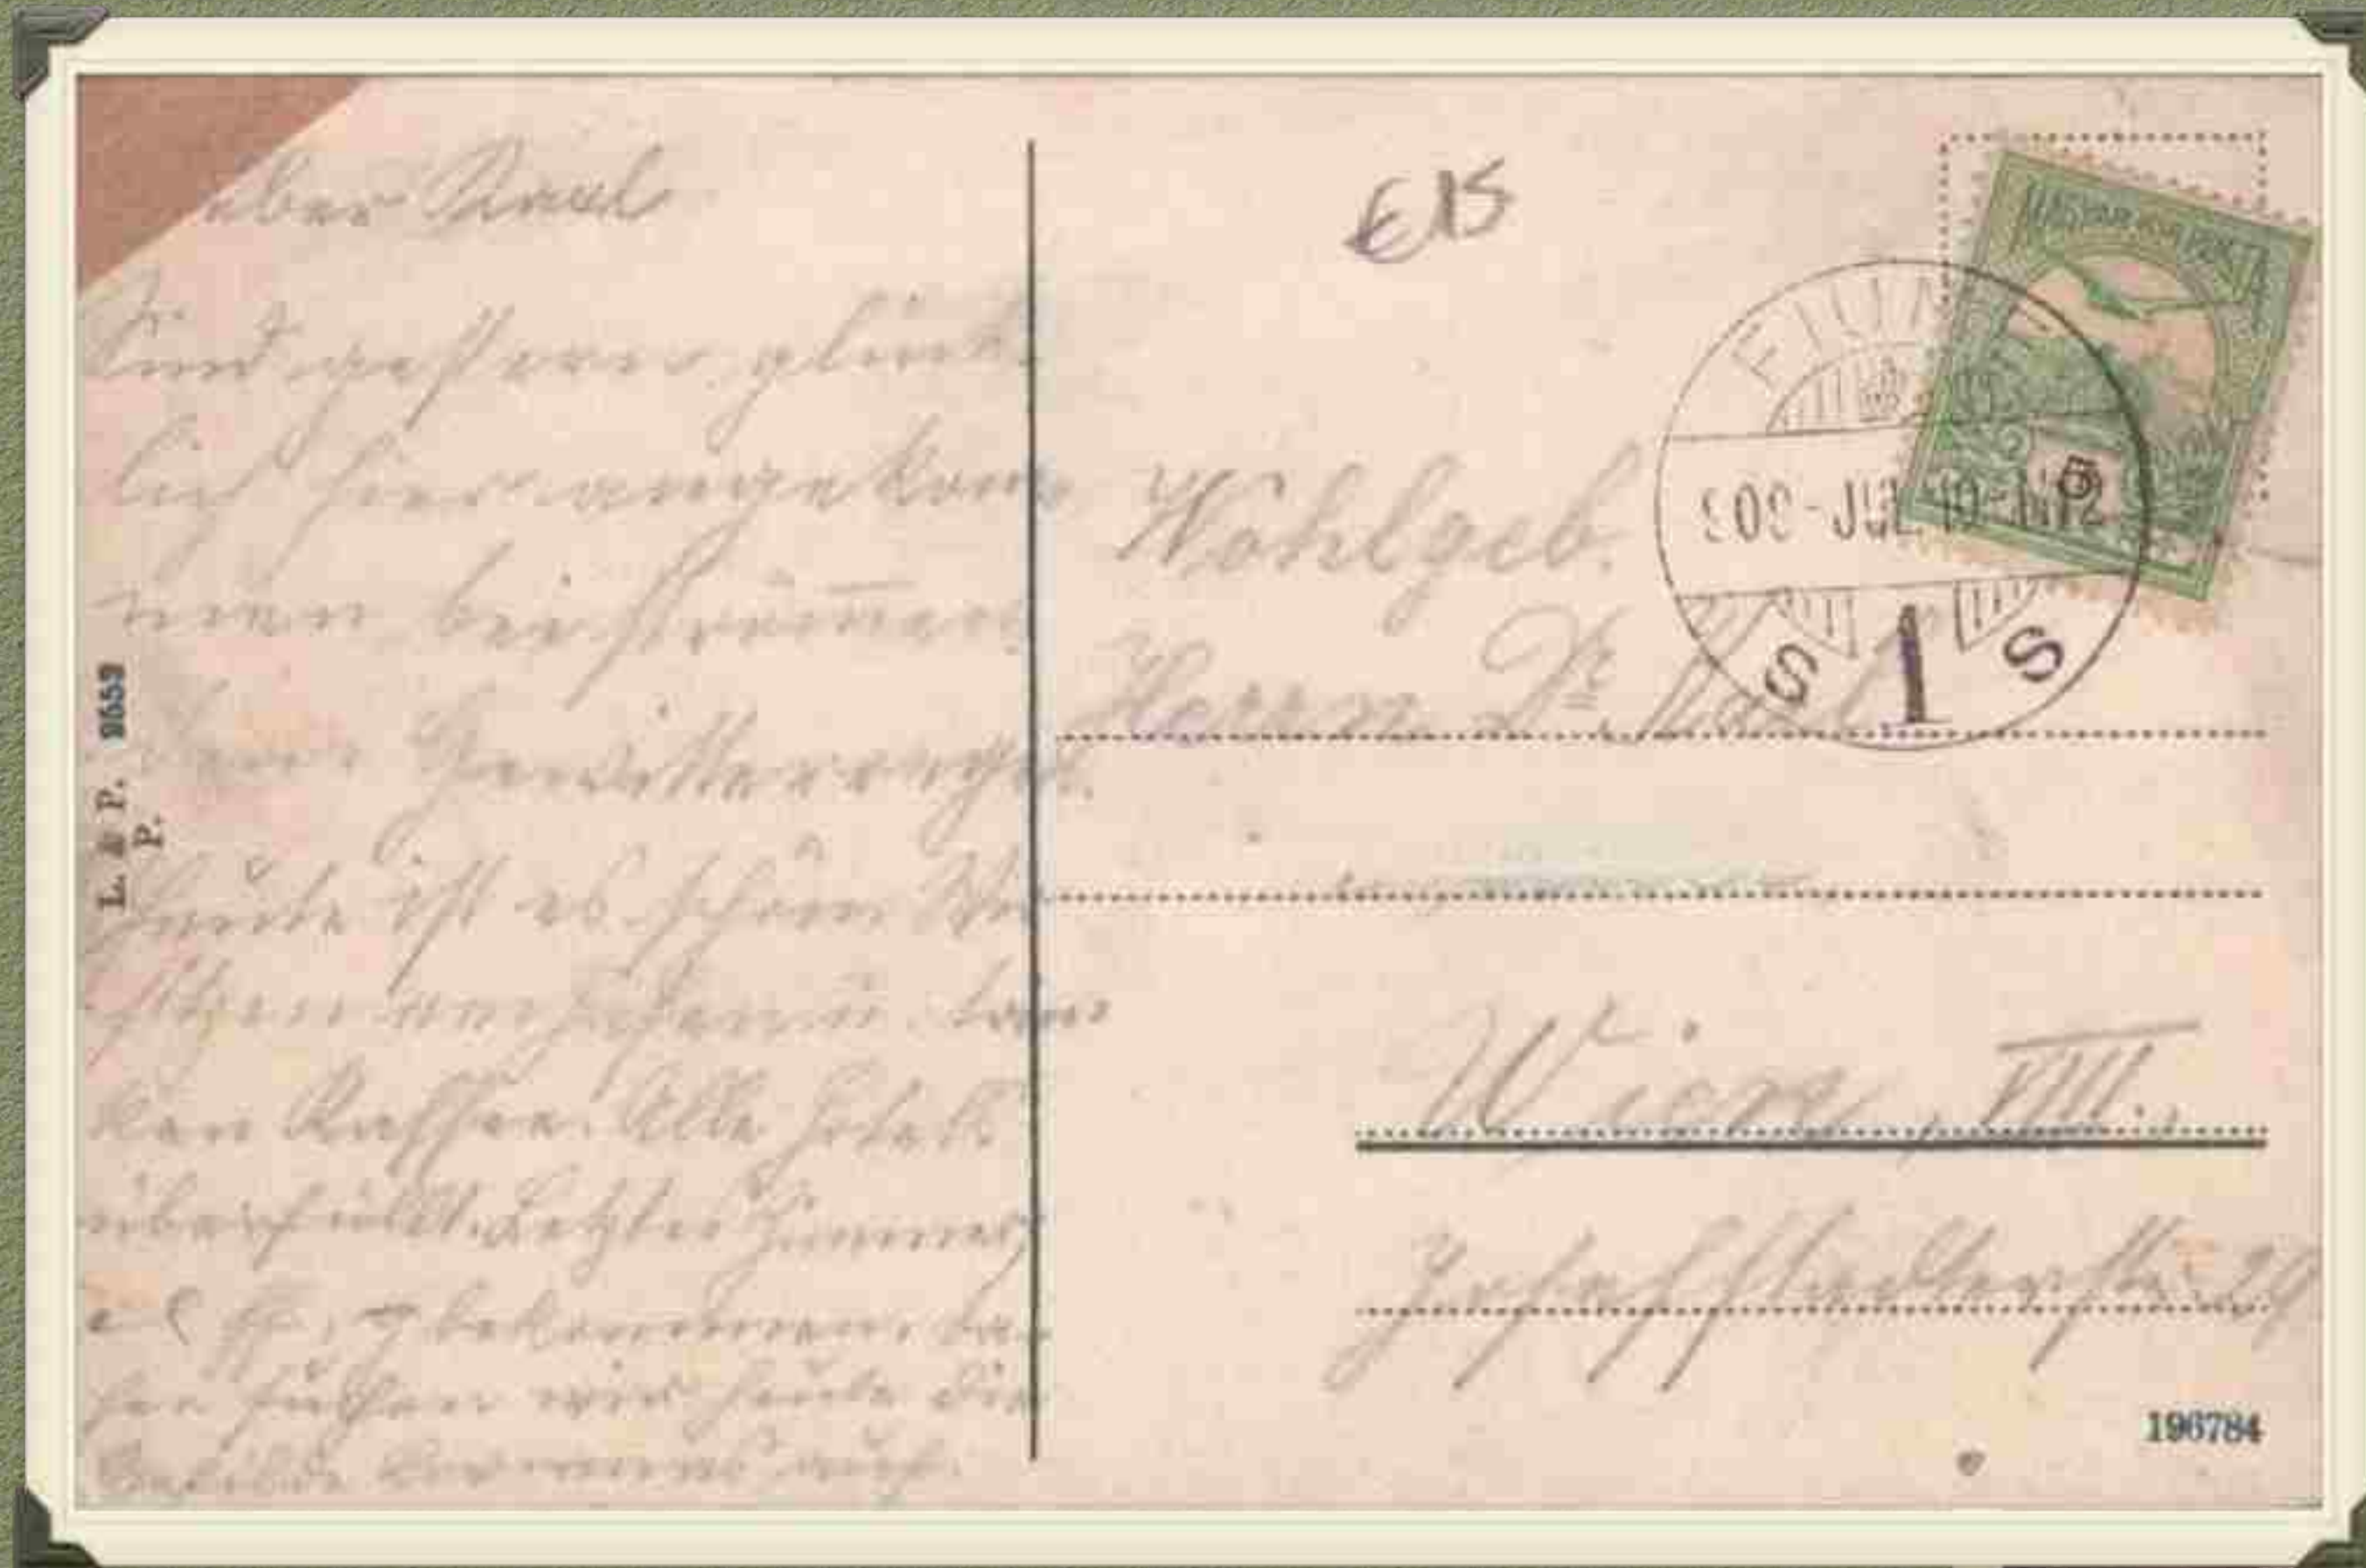 lieber Paul
Sind gestern glück
lich hier angekom
men bei strömen
dem Gewitterregen.
Heute ist es schön. Wir
sitzen am Hafen u. trin
ken Kaffee. Alle Hotels
überfüllt. Letztes Zimmer,
bekommen. Da
her suchen wir heute die
auf.
L. & P. 9659
P.
€15
MAGYAR KIR. POSTA
FIUME
909 JUL 10
S 1 S
5
Wohlgeb.
Herrn Dr. Paul
Wien, VIII.,
Josefstädterstr. 29
196784